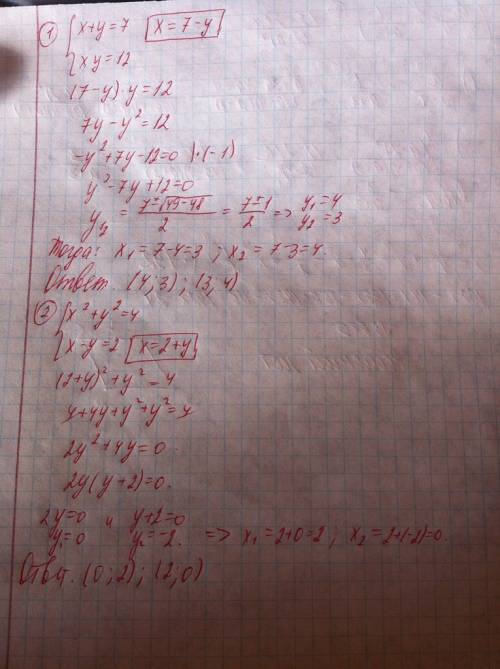 ① { x+y=7 x=7-y
xy=12
(7-y)·y=12
7y-y²=12
-y²+7y-12=0 |·(-1)
y²-7y+12=0
y½ = 7±√49-48 / 2 = 7±1 / 2 => y₁=4 y₂=3
Тогда: x₁=7-4=3 ; x₂=7-3=4.
Ответ. (4;3); (3;4)
② { x²+y²=4
x-y=2 x=2+y
(2+y)²+y²=4
4+4y+y²+y²=4
2y²+4y=0.
2y(y+2)=0.
2y=0 и y+2=0
y₁=0 y₂=-2. => x₁=2+0=2; x₂=2+(-2)=0.
Ответ. (0;2); (2;0)